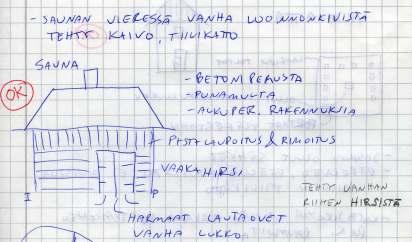 - SAUNAN VIERESSÄ VANHA LUONNONKIVISTÄ
TEHTY KAIVO, TIILIKATTO
SAUNA
OK
- BETONIPERUSTA
- PUNAMULTA
- ALKUPER. RAKENNUKSIA
PYSTYLAUDOITUS & RIMOITUS
VAAKAHIRSI
TEHTY VANHAN
RIIHEN HIRSISTÄ
I
P
HARMAAT LAUTAOVET
VANHA LUKKO